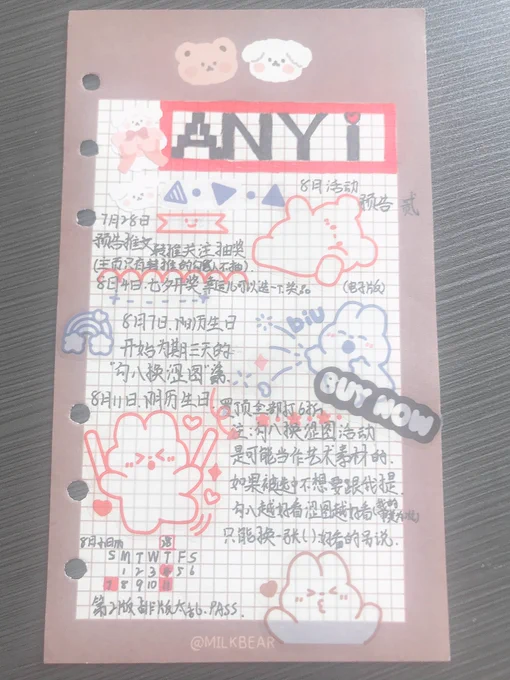 ANYi
8月活动
预告 贰
7月28日
预告推文 转推关注抽奖
(主页只有转推的 不抽).
8月4日.七夕开奖 可以选一个奖品
(电子版)
8月7日.阳历生日
开始为期三天的
"勾八换涩图"第
8月11日.阴历生日
置顶全部打6折
注:勾八换涩图活动
是可能当作艺术素材的.
如果被选中不想要跟我提.
勾八越好看涩图越好看
只能换一张()好看的另说.
biu
BUY NOW
8月
S M T W T F S
1 2 3 4 5 6
7 8 9 10 11
第 版 版太乱.PASS.
@MILKBEAR